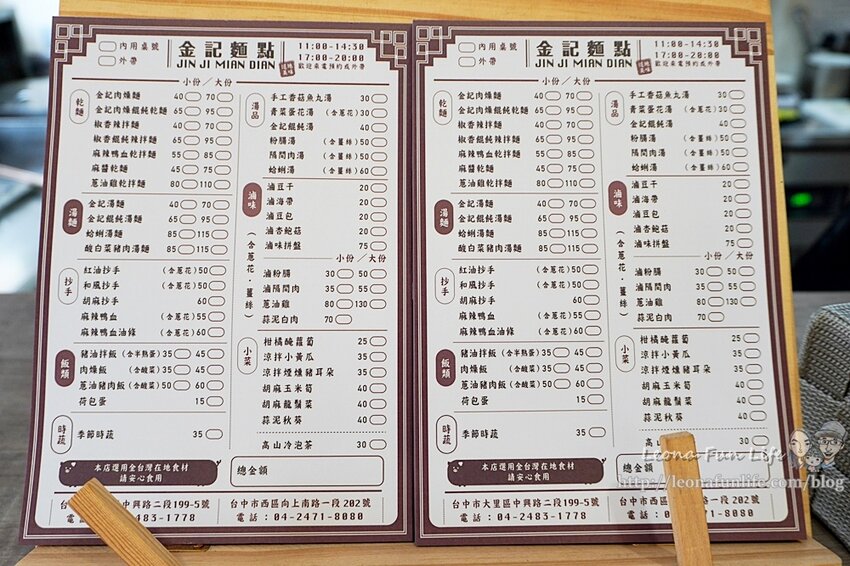 內用桌號
外帶
金記麵點
JIN JI MIAN DIAN
道地美味
11:00-14:30
17:00-20:00
歡迎來電預約或外帶
小份/大份
乾麵
金記肉燥麵 40 70
金記肉燥餛飩乾麵 65 95
椒香辣拌麵 40 70
椒香餛飩辣拌麵 65 95
麻辣鴨血乾拌麵 55 85
麻醬乾麵 45 75
蔥油雞乾拌麵 80 110
湯麵
金記湯麵 40 70
金記餛飩湯麵 65 95
蛤蜊湯麵 85 115
酸白菜豬肉湯麵 85 115
抄手
紅油抄手 (含蔥花) 50
和風抄手 (含蔥花) 50
胡麻抄手 60
麻辣鴨血 (含蔥花) 55
麻辣鴨血油條 (含蔥花) 60
飯類
豬油拌飯 (含半熟蛋) 35 45
肉燥飯 (含酸菜) 35 45
蔥油豬肉飯 (含酸菜) 50 60
荷包蛋 15
時蔬
季節時蔬 35
湯品
手工香菇魚丸湯 30
青菜蛋花湯 (含蔥花) 30
金記餛飩湯 40
粉腸湯 (含薑絲) 50
隔間肉湯 (含薑絲) 50
蛤蜊湯 (含薑絲) 60
滷味(含蔥花·薑絲)
滷豆干 20
滷海帶 20
滷豆包 20
滷杏鮑菇 20
滷味拼盤 75
小份/大份
滷粉腸 30 50
滷隔間肉 35 55
蔥油雞 80 130
蒜泥白肉 70
小菜
柑橘醃蘿蔔 25
涼拌小黃瓜 35
涼拌煙燻豬耳朵 35
胡麻玉米筍 40
胡麻龍鬚菜 40
蒜泥秋葵 40
高山冷泡茶 30
本店選用全台灣在地食材
請安心食用
總金額
台中市大里區中興路二段199-5號
電話:04-2483-1778
台中市西區向上南路一段202號
電話:04-2471-8080
內用桌號
外帶
金記麵點
JIN JI MIAN DIAN
道地美味
11:00-14:30
17:00-20:00
歡迎來電預約或外帶
小份/大份
乾麵
金記肉燥麵 40 70
金記肉燥餛飩乾麵 65 95
椒香辣拌麵 40 70
椒香餛飩辣拌麵 65 95
麻辣鴨血乾拌麵 55 85
麻醬乾麵 45 75
蔥油雞乾拌麵 80 110
湯麵
金記湯麵 40 70
金記餛飩湯麵 65 95
蛤蜊湯麵 85 115
酸白菜豬肉湯麵 85 115
抄手
紅油抄手 (含蔥花) 50
和風抄手 (含蔥花) 50
胡麻抄手 60
麻辣鴨血 (含蔥花) 55
麻辣鴨血油條 (含蔥花) 60
飯類
豬油拌飯 (含半熟蛋) 35 45
肉燥飯 (含酸菜) 35 45
蔥油豬肉飯 (含酸菜) 50 60
荷包蛋 15
時蔬
季節時蔬 35
湯品
手工香菇魚丸湯 30
青菜蛋花湯 (含蔥花) 30
金記餛飩湯 40
粉腸湯 (含薑絲) 50
隔間肉湯 (含薑絲) 50
蛤蜊湯 (含薑絲) 60
滷味(含蔥花·薑絲)
滷豆干 20
滷海帶 20
滷豆包 20
滷杏鮑菇 20
滷味拼盤 75
小份/大份
滷粉腸 30 50
滷隔間肉 35 55
蔥油雞 80 130
蒜泥白肉 70
小菜
柑橘醃蘿蔔 25
涼拌小黃瓜 35
涼拌煙燻豬耳朵 35
胡麻玉米筍 40
胡麻龍鬚菜 40
蒜泥秋葵 40
高山冷泡茶 30
本店選用全台灣在地食材
請安心食用
總金額
台中市大里區中興路二段199-5號
電話:04-2483-1778
台中市西區 一段202號
電話 2471-8080
Leona Fun Life
http://leonafunlife.com/blog